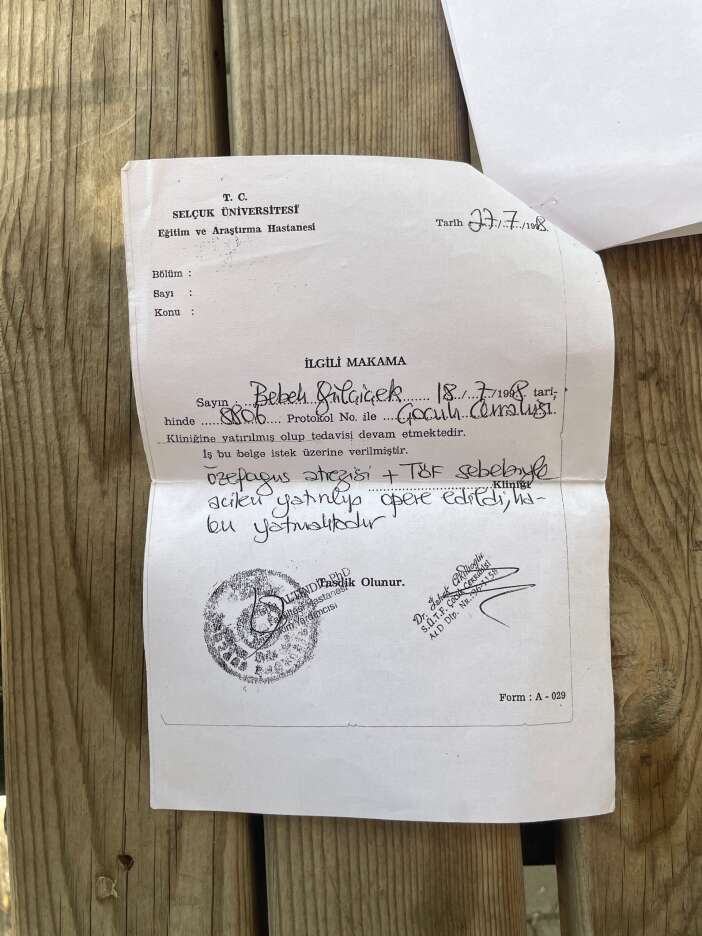 T. C.
SELÇUK ÜNİVERSİTESİ
Eğitim ve Araştırma Hastanesi
Tarih 27./.7./1998.
Bölüm :
Sayı :
Konu :
İLGİLİ MAKAMA
Sayın : Bebek Gülçiçek 18./.7./1998 tari-
hinde 8806 Protokol No. ile Çocuk Cerrahisi
Kliniğine yatırılmış olup tedavisi devam etmektedir.
İş bu belge istek üzerine verilmiştir.
özefagus atrezisi + TÖF sebebiyle
Kliniği
acilen yatırılıp opere edildi, ha-
len yatmaktadır
Tasdik Olunur.
PhD
Hastanesi
Yardımcısı
Dr.
S.Ü.T.F. Çocuk Cerrahisi
Dip. No:
Form : A - 029